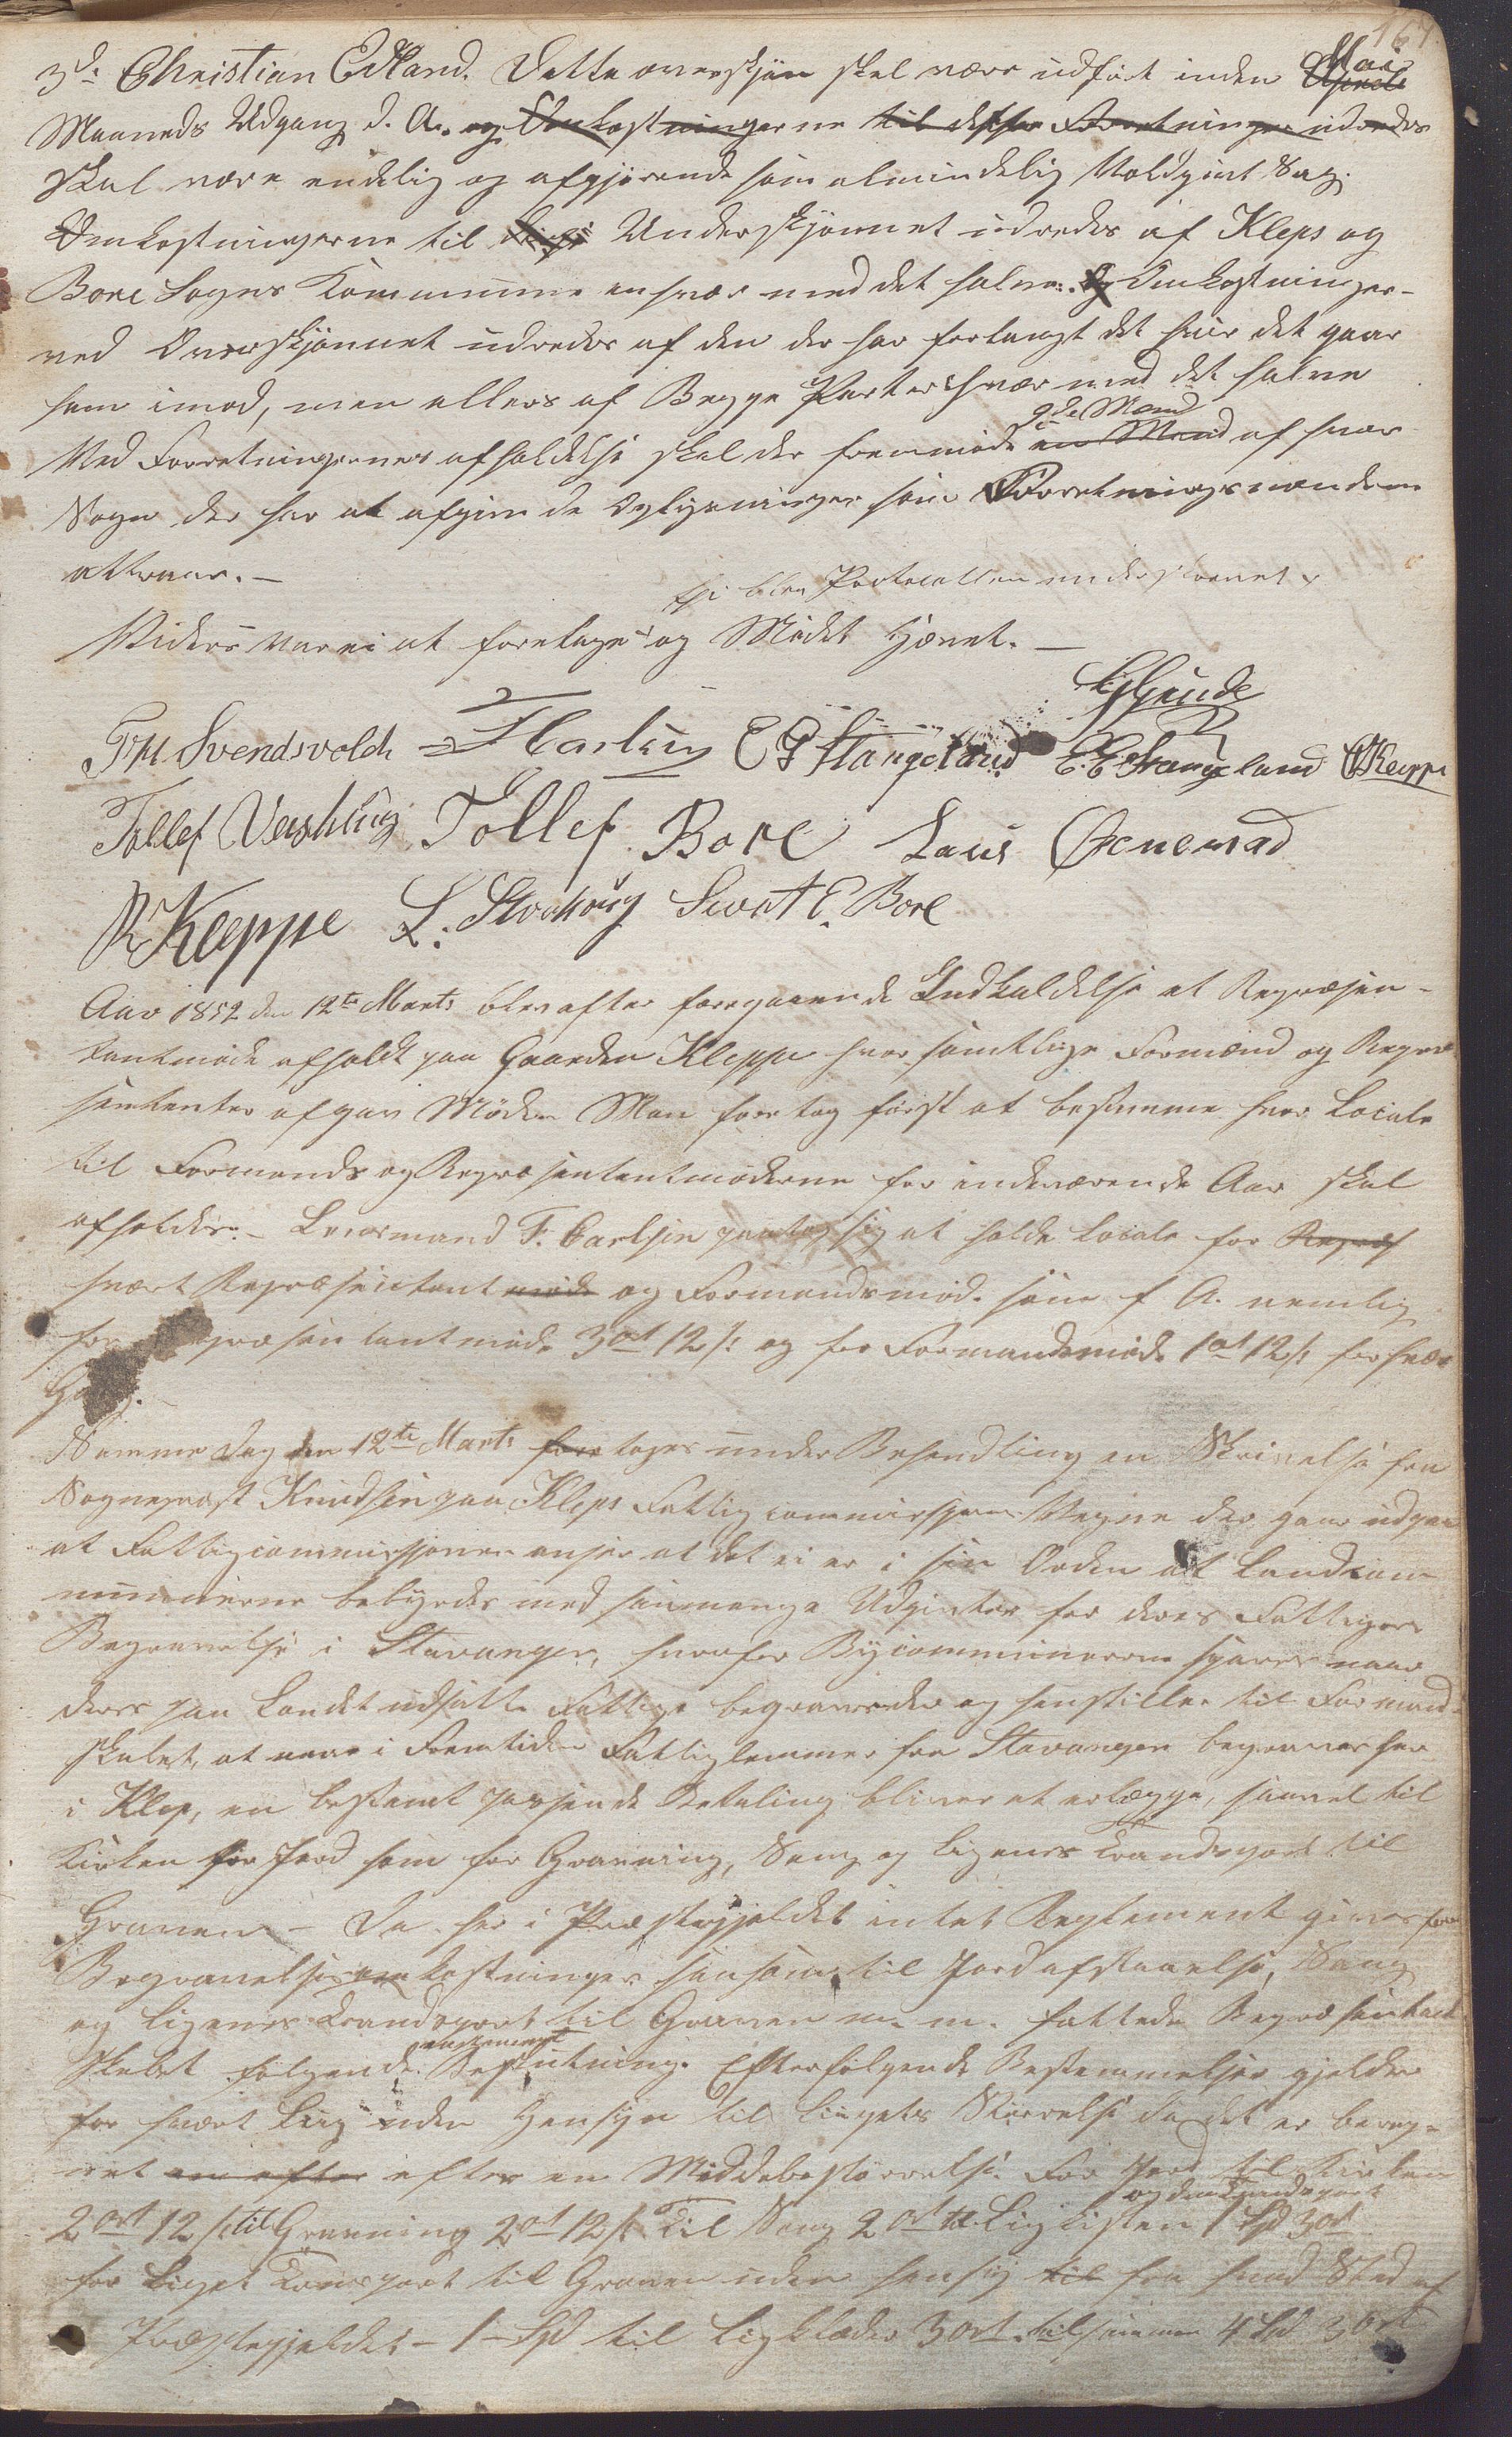 167.
3die Christian Edland. Dette overskjøn skal være udført inden April Mai
Maaneds Udgang d. A. og Omkostningerne til disse Forretninger udredes
skal være endelig og afgjørende som almindelig Voldgivt Sag.
Omkostningerne til Underskjønnet udredes af Kleps og
Bore Sogns Kommunne enhver med det halve. Og Omkostninger
ved Overskjønnet udredes af den der har forlangt det hvis det gaar
ham imod, men ellers af Begge Parter hver med det halve
Ved Forretningernes afholdelse skal der fremmøde en Mand gde Mænd af hver
Sogn der har at afgive de Oplysninger som Forretningsmændene
attraar.-
thi blev Protocollen underskrevet
Videre var ei at foretage og Mødet Hævet.-
T. H. Svendsvold F. Carlsen E S Stangeland E. E. Stangeland O Kleppe
Tollef Vershaug Tollef Bore Laus Grnemad
R Kleppe L. Storhoug Sivert E. Bore
Aar 1852 den 12te Marts blev efter foregaaende Indkaldelse et Repræsen-
tantmøde afholdt paa Gaarden Kleppe hvor samtlige Formænd og Repræ
sentanter afgav Møde. Man foretog først at bestemme hvor Locale
til Formands og Repræsentantmøderne for indeværende Aar skal
afholdes.- Lensmand F. Carlsen paatog sig at holde Locale for Repræs
hvert Repræsentant møde og Formandsmøde som f A. nemlig
for Repræsentantmøde 3 ort 12 s og for Formandsmøde 1 ort 12 s for hver
Gang.
Samme Dag den 12te Marts foretoges under Behandling en Skrivelse fra
Sognepræst Knudsen paa Kleps Fattigcommissions Vegne der gaar ud paa
at Fattigcommissionen anser at det ei er i sin Orden at Landcom
munerne bebyrdes med saamange Udgivter for deres Fattiges
Begravelse i Stavanger, hvorfor Bycommunerne spares naar
deres paa Landet udsatte Fattige begravedes og henstiller til Formand-
skabet, at naar i Fremtiden Fattiglemmer fra Stavanger begraves her
i Klep, en bestemt passende Betaling bliver at erlægge, saavel til
Kirken for Jord som for Gravning, Sang og Ligenes Transport til
Graven.- Da her i Præstegjeldet intet Reglement gives for
Begravelsesomkostninger saasom til Jordafstaaelse, Sang
og Ligenes Transport til Graven m. m. fattede Repræsentant
skabet følgende eenstemmige Beslutning. Efterfølgende Bestemmelser gjelder
for hvert Liig uden Hensyn til Liigets Størrelse da det er bereg-
net en efter efter en Middelstørrelse. For Jord til Kirken
2 ort 12 s til Gravning 2 ort 12 s Til Sang 2 ort til Ligkisten og dens Transport 1 Spd 3 ort
for Liget Transport til Graven uden hensyn til fra hvad Sted af
Præstegjeldet - 1 - Spd til Ligklæder 3 ort tilsammen 4 Spd 3 ort